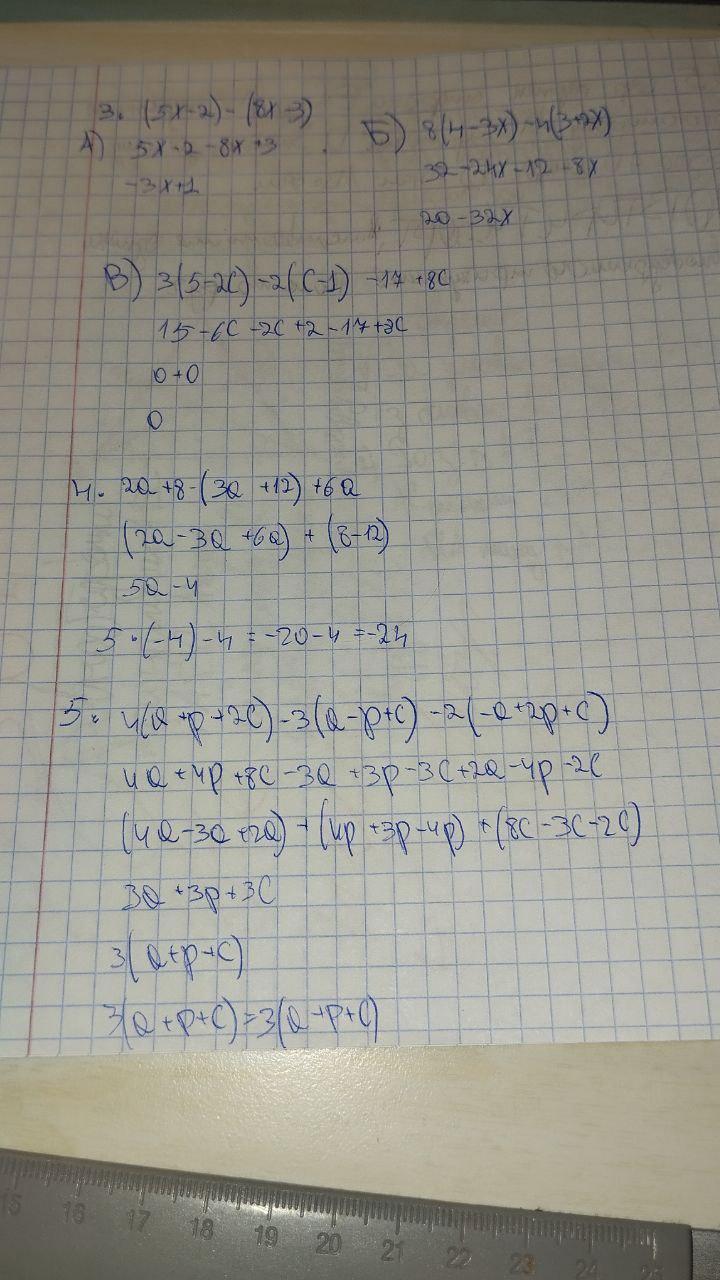 3. (5x-2)-(8x-3)
А) 5x-2-8x+3
-3x+1
Б) 8(4-3x)-4(3+2x)
32-24x-12-8x
20-32x
В) 3(5-2c)-2(c-1)-17+8c
15-6c-2c+2-17+8c
0+0
0
4. 2a+8-(3a+12)+6a
(2a-3a+6a)+(8-12)
5a-4
5·(-4)-4=-20-4=-24
5. 4(a+p+2c)-3(a-p+c)-2(-a+2p+c)
4a+4p+8c-3a+3p-3c+2a-4p-2c
(4a-3a+2a)+(4p+3p-4p)+(8c-3c-2c)
3a+3p+3c
3(a+p+c)
3(a+p+c)=3(a+p+c)
15 16 17 18 19 20 21 22 23 24 25